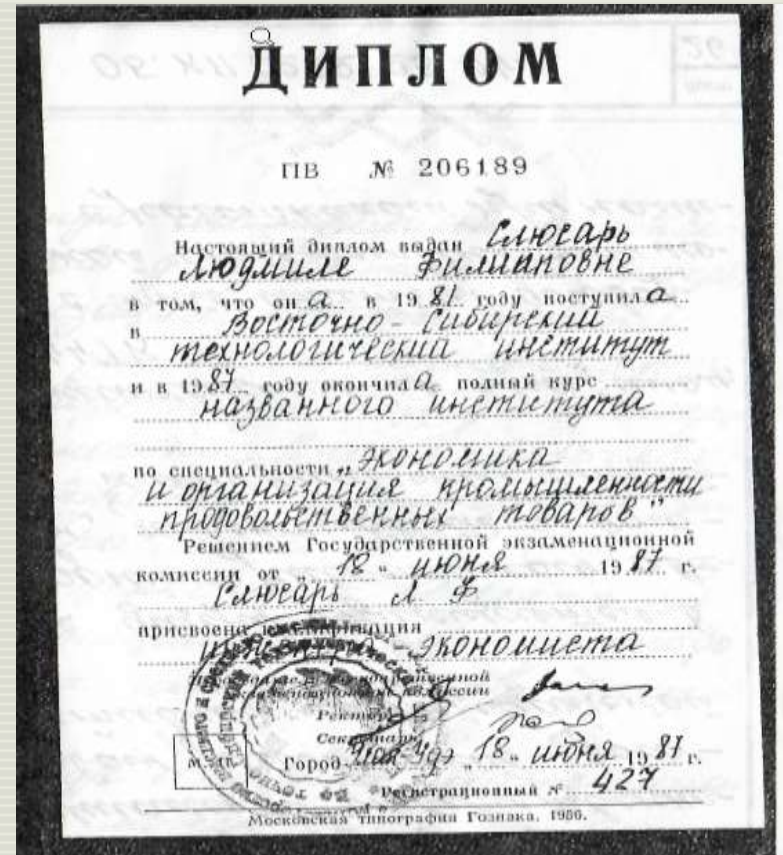 ДИПЛОМ
ПВ № 206189
Настоящий диплом выдан Слюсарь
Людмиле Филипповне
в том, что он а в 1981 году поступила
в Восточно-Сибирский
технологический институт
и в 1987 году окончила полный курс
названного института
по специальности „Экономика
и организация промышленности
продовольственных товаров"
Решением Государственной экзаменационной
комиссии от „18" июня 1987 г.
Слюсарь Л Ф
присвоена квалификация
инженера-экономиста
Председатель Государственной
экзаменационной комиссии
Ректор
Секретарь
Город Улан-Удэ „18" июня 1987 г.
Регистрационный № 427
Московская типография Гознака. 1986.